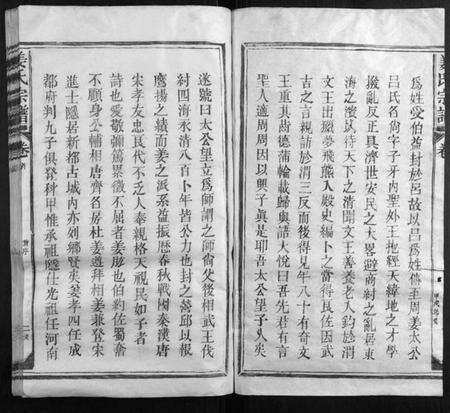 為姓受伯益封於呂故以呂為姓傳至周姜太公
呂氏名尚字子牙內聖外王地經天緯地之才學
撥亂反正具濟世安民之大畧避商紂之亂居東
海之濱以待天下之清聞文王善養老人釣於渭
文王出獵夢飛熊入殿史編卜之當得良佐因武
古之言親訪於渭三反而後得見年八十有奇文
王重其齒德蒲輪載歸與語大悅曰吾先君有言
聖人適周周因以興子真是耶吾太公望子久矣
遂號曰太公望立為師謂之師尚父後相武王伐
紂四海永清八百卜年皆公力也封之營邱以報
鷹揚之績而姜之派系益振歷春秋戰國秦漢唐
宋孝友忠良代不乏人奉親格天視民如子者
詩也愛敬彌篤累徵不屈者姜肱也伯約佐蜀奮
不顧身公輔相唐齊名房杜姜遵拜相姜兼登宋
進士隱居新都古城內亦列鄉賢矣姜孝四任成
都府判九子俱登科甲惟承祖應仕光祖任河南
姜氏宗譜
卷
姜氏宗譜
卷